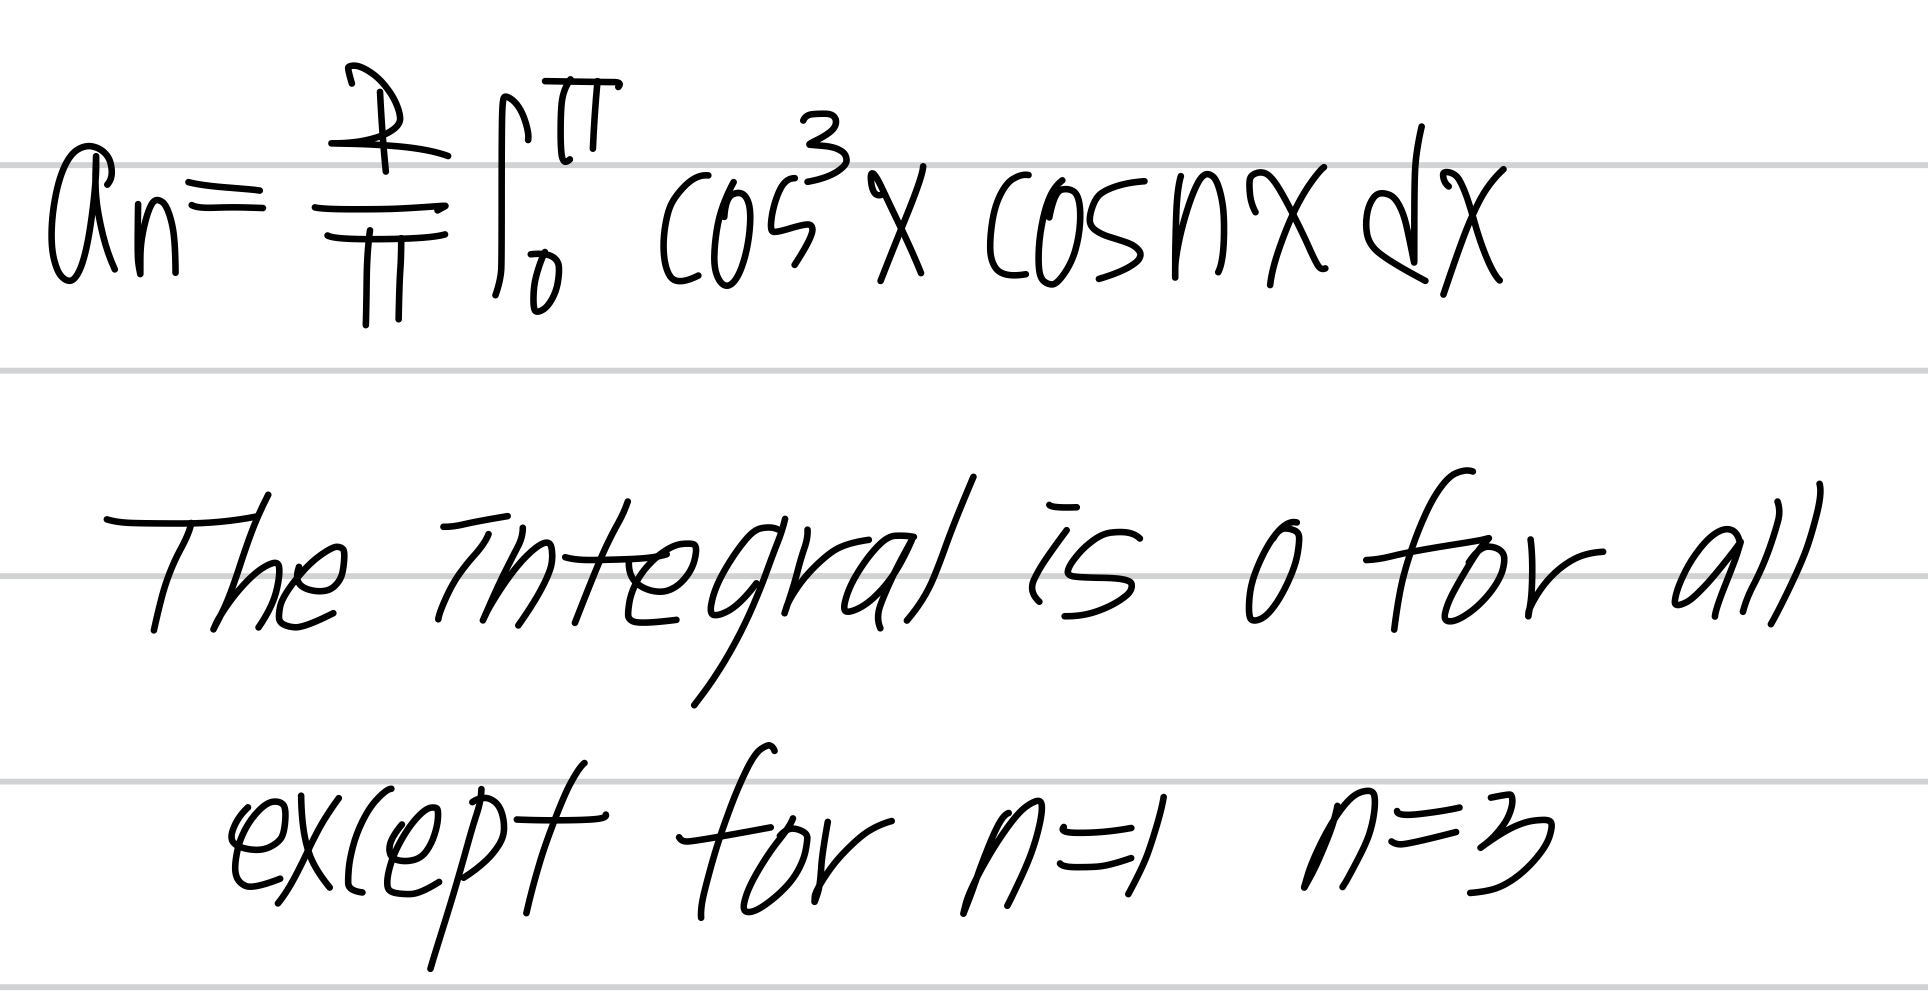 an = 2/π ∫₀^π cos³x cosnx dx
The integral is 0 for all
except for n=1 n=3